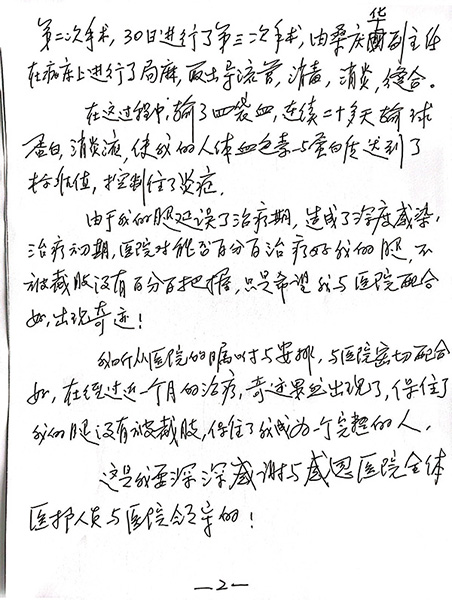 第二次手术，30日进行了第三次手术，由桑庆华副主任
在病床上进行了局麻，取出导流管，消毒，消炎，缝合。
在这过程中，输了四袋血，连续二十多天输球
蛋白，消炎液，使我的人体血色素与蛋白质达到了
标准值，控制住了炎症。
由于我的腿延误了治疗期，造成了深度感染，
治疗初期，医院对能否百分百治疗好我的腿，不
被截肢没有百分百把握，只是希望我与医院配合
好，出现奇迹！
我听从医院的嘱咐与安排，与医院密切配合
好，在经过近一个月的治疗，奇迹果然出现了，保住了
我的腿没有被截肢，保住了我成为一个完整的人。
这是我要深深感谢与感恩医院全体
医护人员与医院领导的！
—2—